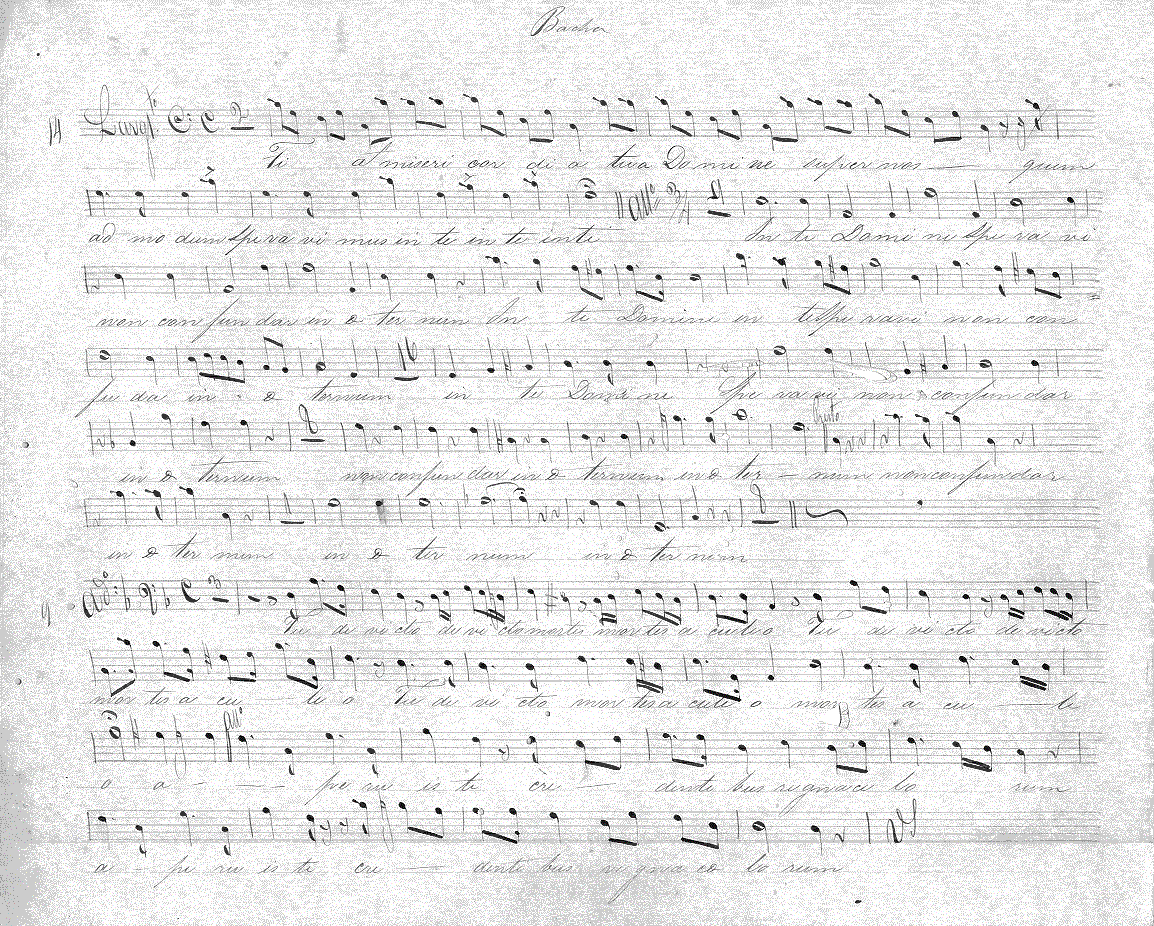 14 Largo
Fi at miseri cor di a tua Do mi ne super nos quem
ad mo dum spe ra vi mus in te in te in ti
All° 3/4
In te Domi ne spe ra vi
non con fun dar in e ter num In te Domine in te Spe ravi non con
fu da in e ternum in te Domi ne Spe ra vi non confun dar
in e ternum non confun dar in e ternum in e ter - num non confundar
in e ter num in e ter num in e ter num
9
Tu de vi cto de vi cto mortis mor tis a cule o Tu de vi cto de victo
mor tis a cu le o Tu de vi cto mor tis a cule o mor tis a cu le
All°
o a - - - pe ru is te cre dente bus regna ce lo rum
a - pe ru is te cre dente bus regna ce lo rum